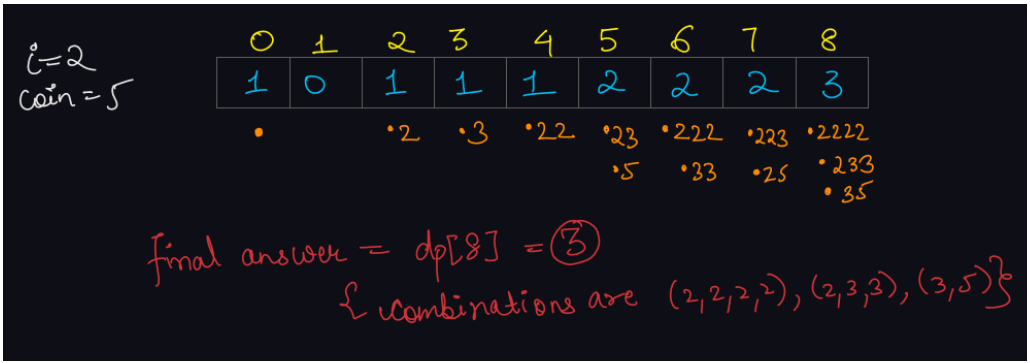 i=2
coin=5
0 1 2 3 4 5 6 7 8
1 0 1 1 1 2 2 2 3
• •2 •3 •22 •23 •222 •223 •2222
•5 •33 •25 •233
•35
final answer = dp[8] = 3
{ combinations are (2,2,2,2), (2,3,3), (3,5)}